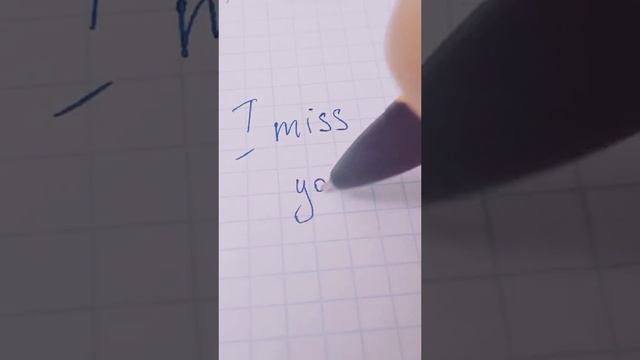 I miss
yo